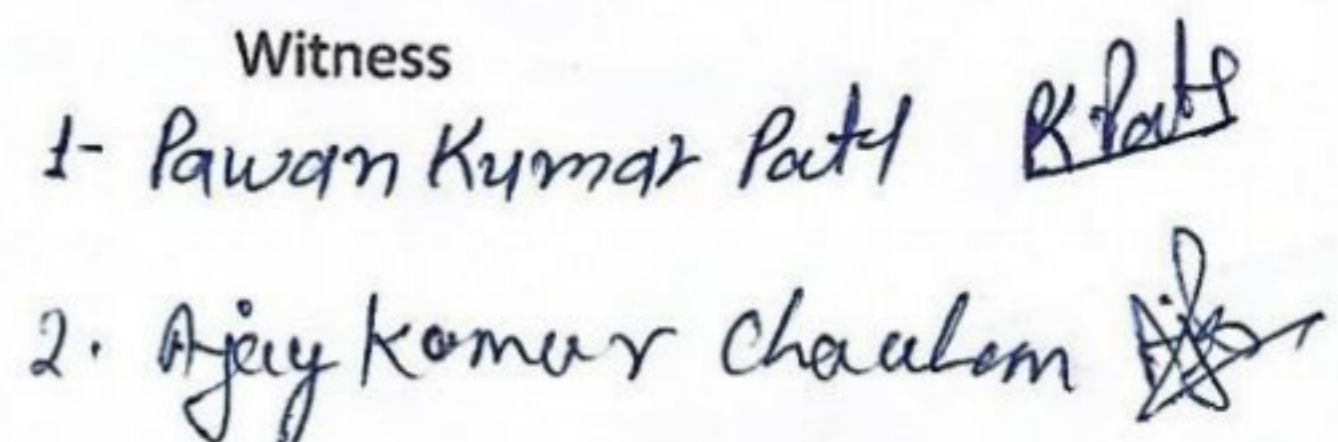 Witness
1- Pawan Kumar Patl K Patl
2. Ajay Kumar Chauhan